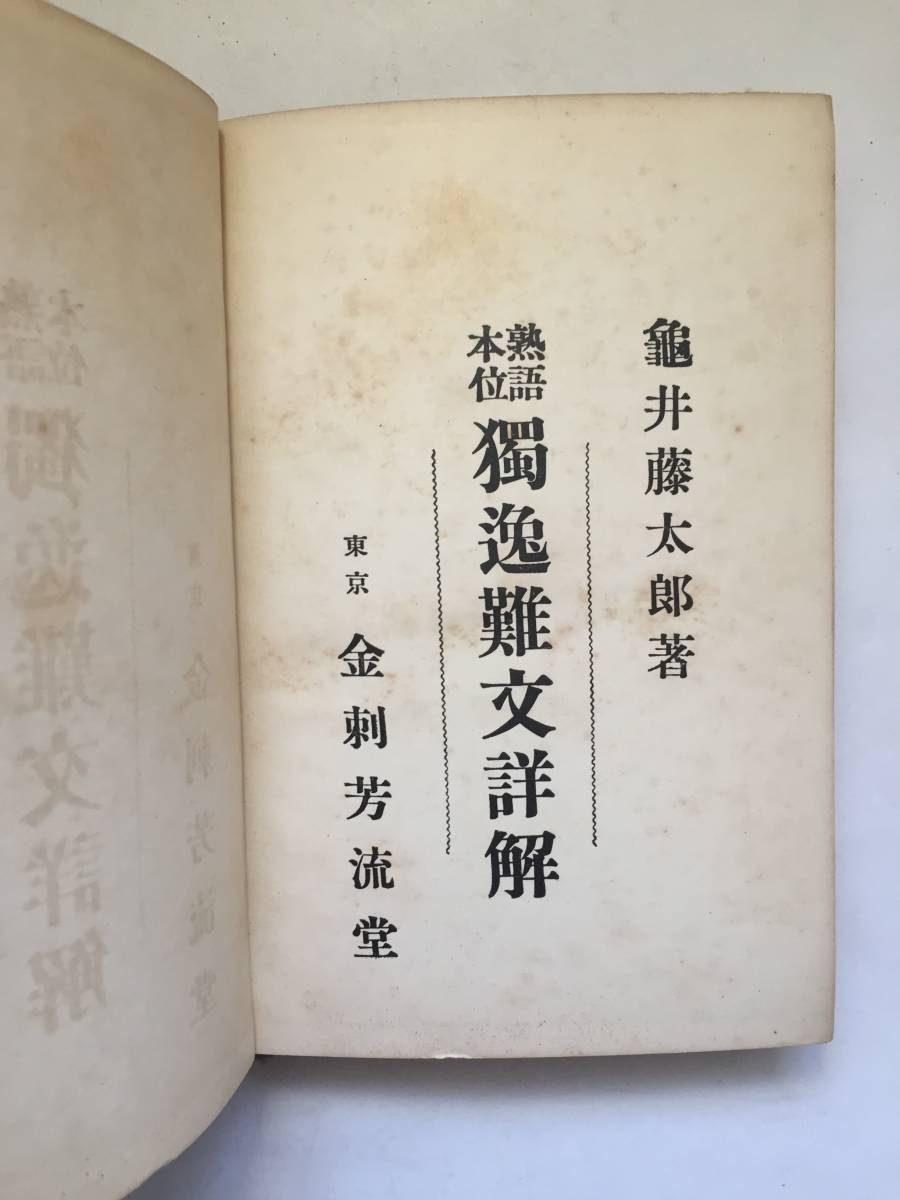 龜井藤太郎著
熟語
本位
獨逸難文詳解
東京 金刺芳流堂